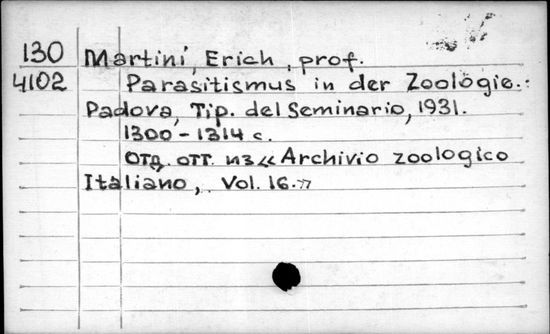 130 Martini, Erich, prof.
4102 Parasitismus in der Zoologie.:
Padova, Tip. del Seminario, 1931.
1300-1314 с.
отд. отт. из « Archivio zoologico
Italiano, Vol. 16.»